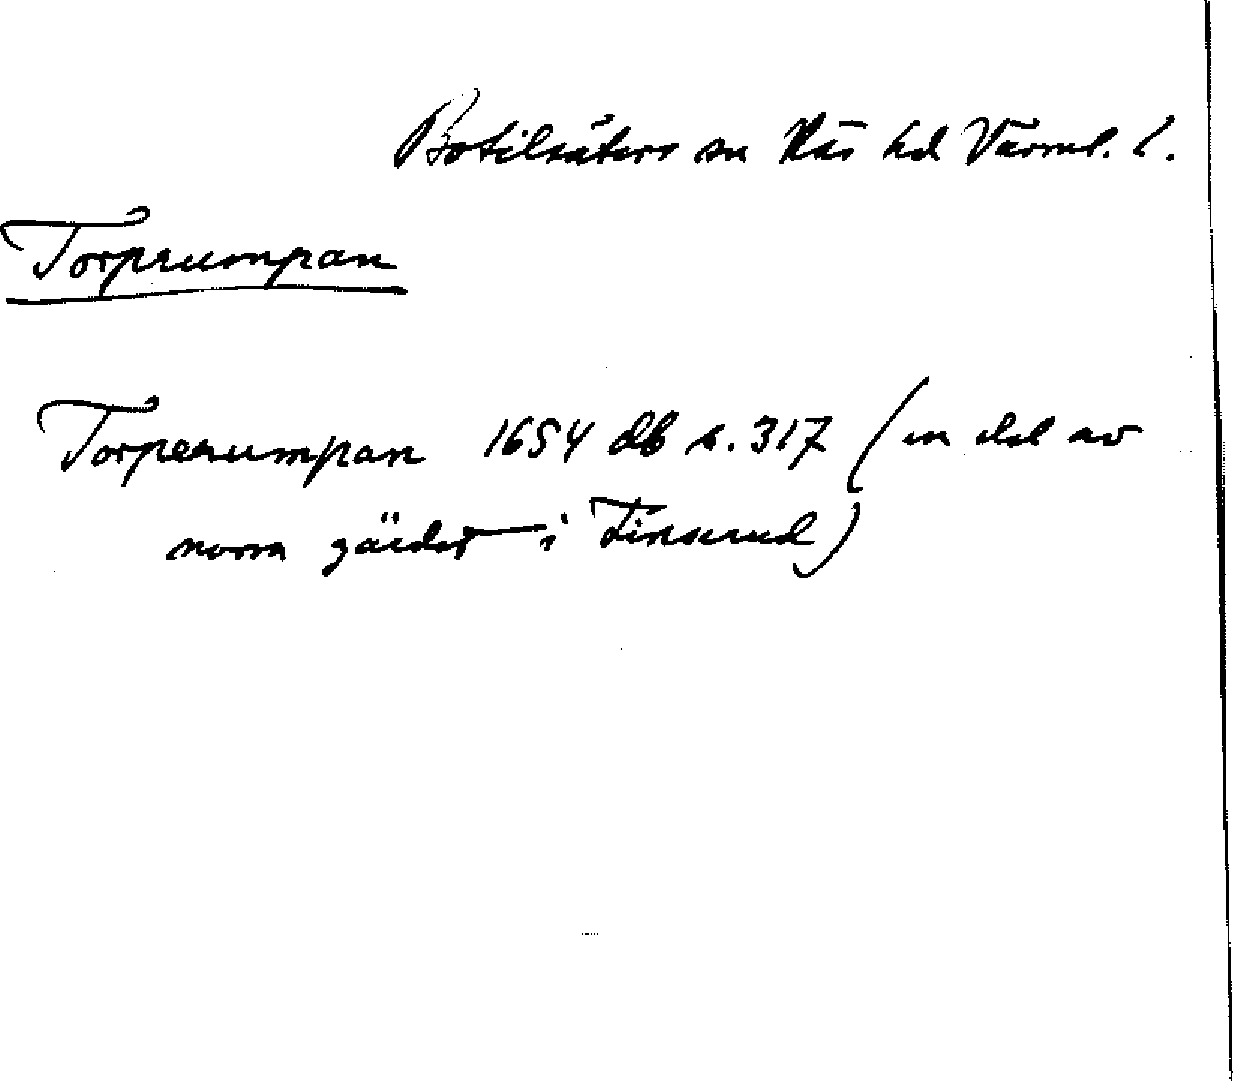 Botilsäters sn Näs hd Värml. l.
Torprumpan
Torperumpan 1654 db s. 317 (en del av
norra gärdet i Finserud)